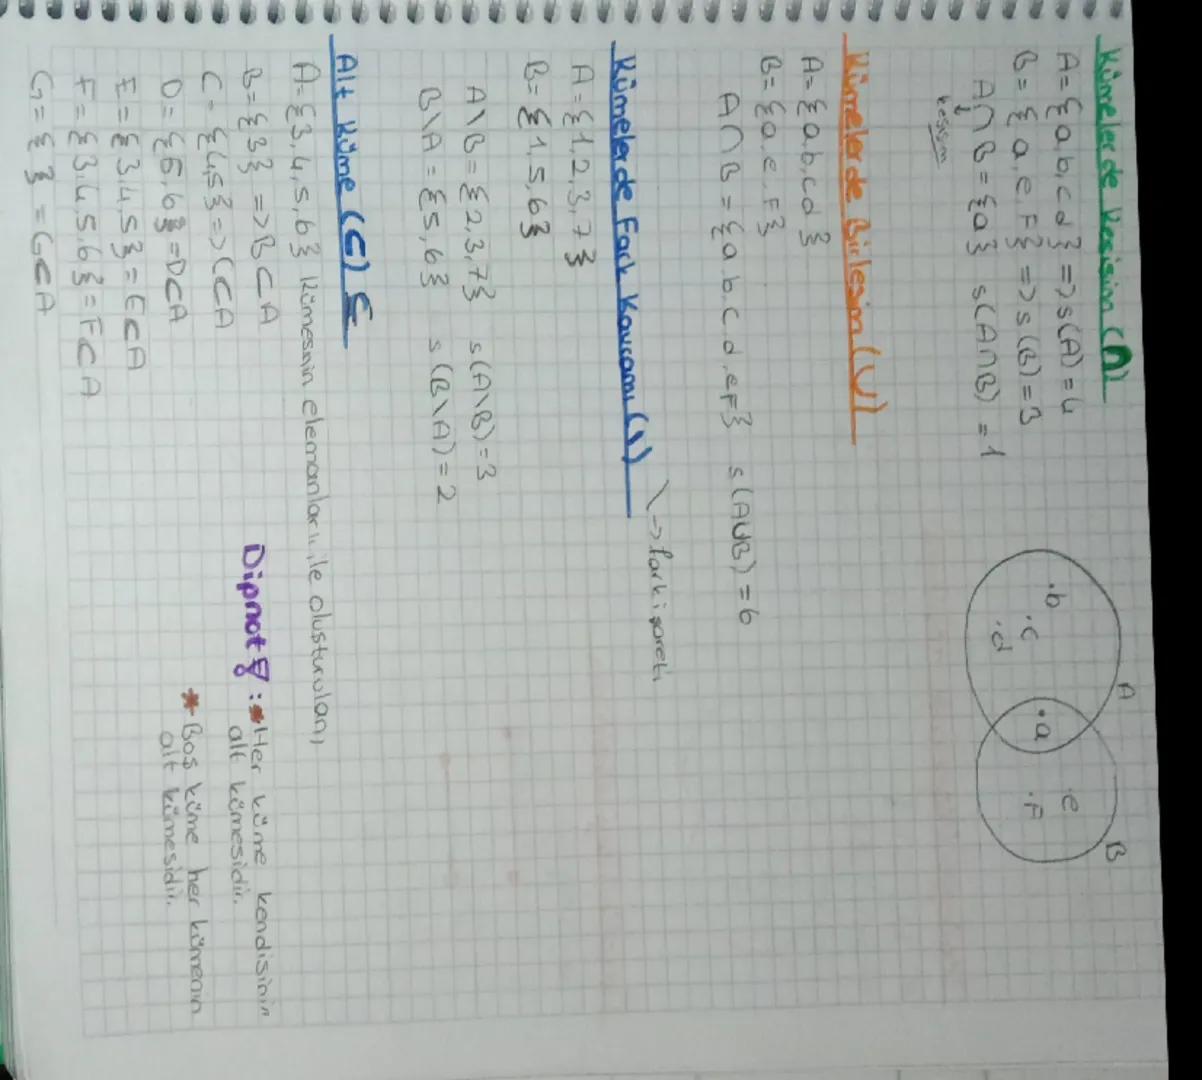 Kümelerde Kesişim (∩)
A={a,b,c,d} => s(A)=4
B={a,e,F} => s(B)=3
A∩B={a} s(A∩B)=1
↓
kesişim
A B
.b .c .d .a .e .F
Kümelerde Birleşim (U)
A={a,b,c,d}
B={a,e,F}
A∩B={a,b,c,d,e,F} s(AUB)=6
Kümelerde Fark Kavramı (\)
\ -> fark işareti
A={1,2,3,7}
B={1,5,6}
A\B={2,3,7} s(A\B)=3
B\A={5,6} s(B\A)=2
Alt Küme (⊂) ⊆
A={3,4,5,6} kümesnin elemanları,ile oluşturulan,
B={3} =>B⊂A
C={4,5} =>C⊂A
D={5,6}=D⊂A
E={3,4,5}=E⊂A
F={3,4,5,6}=F⊂A
G={ }=G⊂A
Dipnot!:*Her küme kendisinin
alt kümesidir.
*Boş küme her kümenin
alt kümesidir.